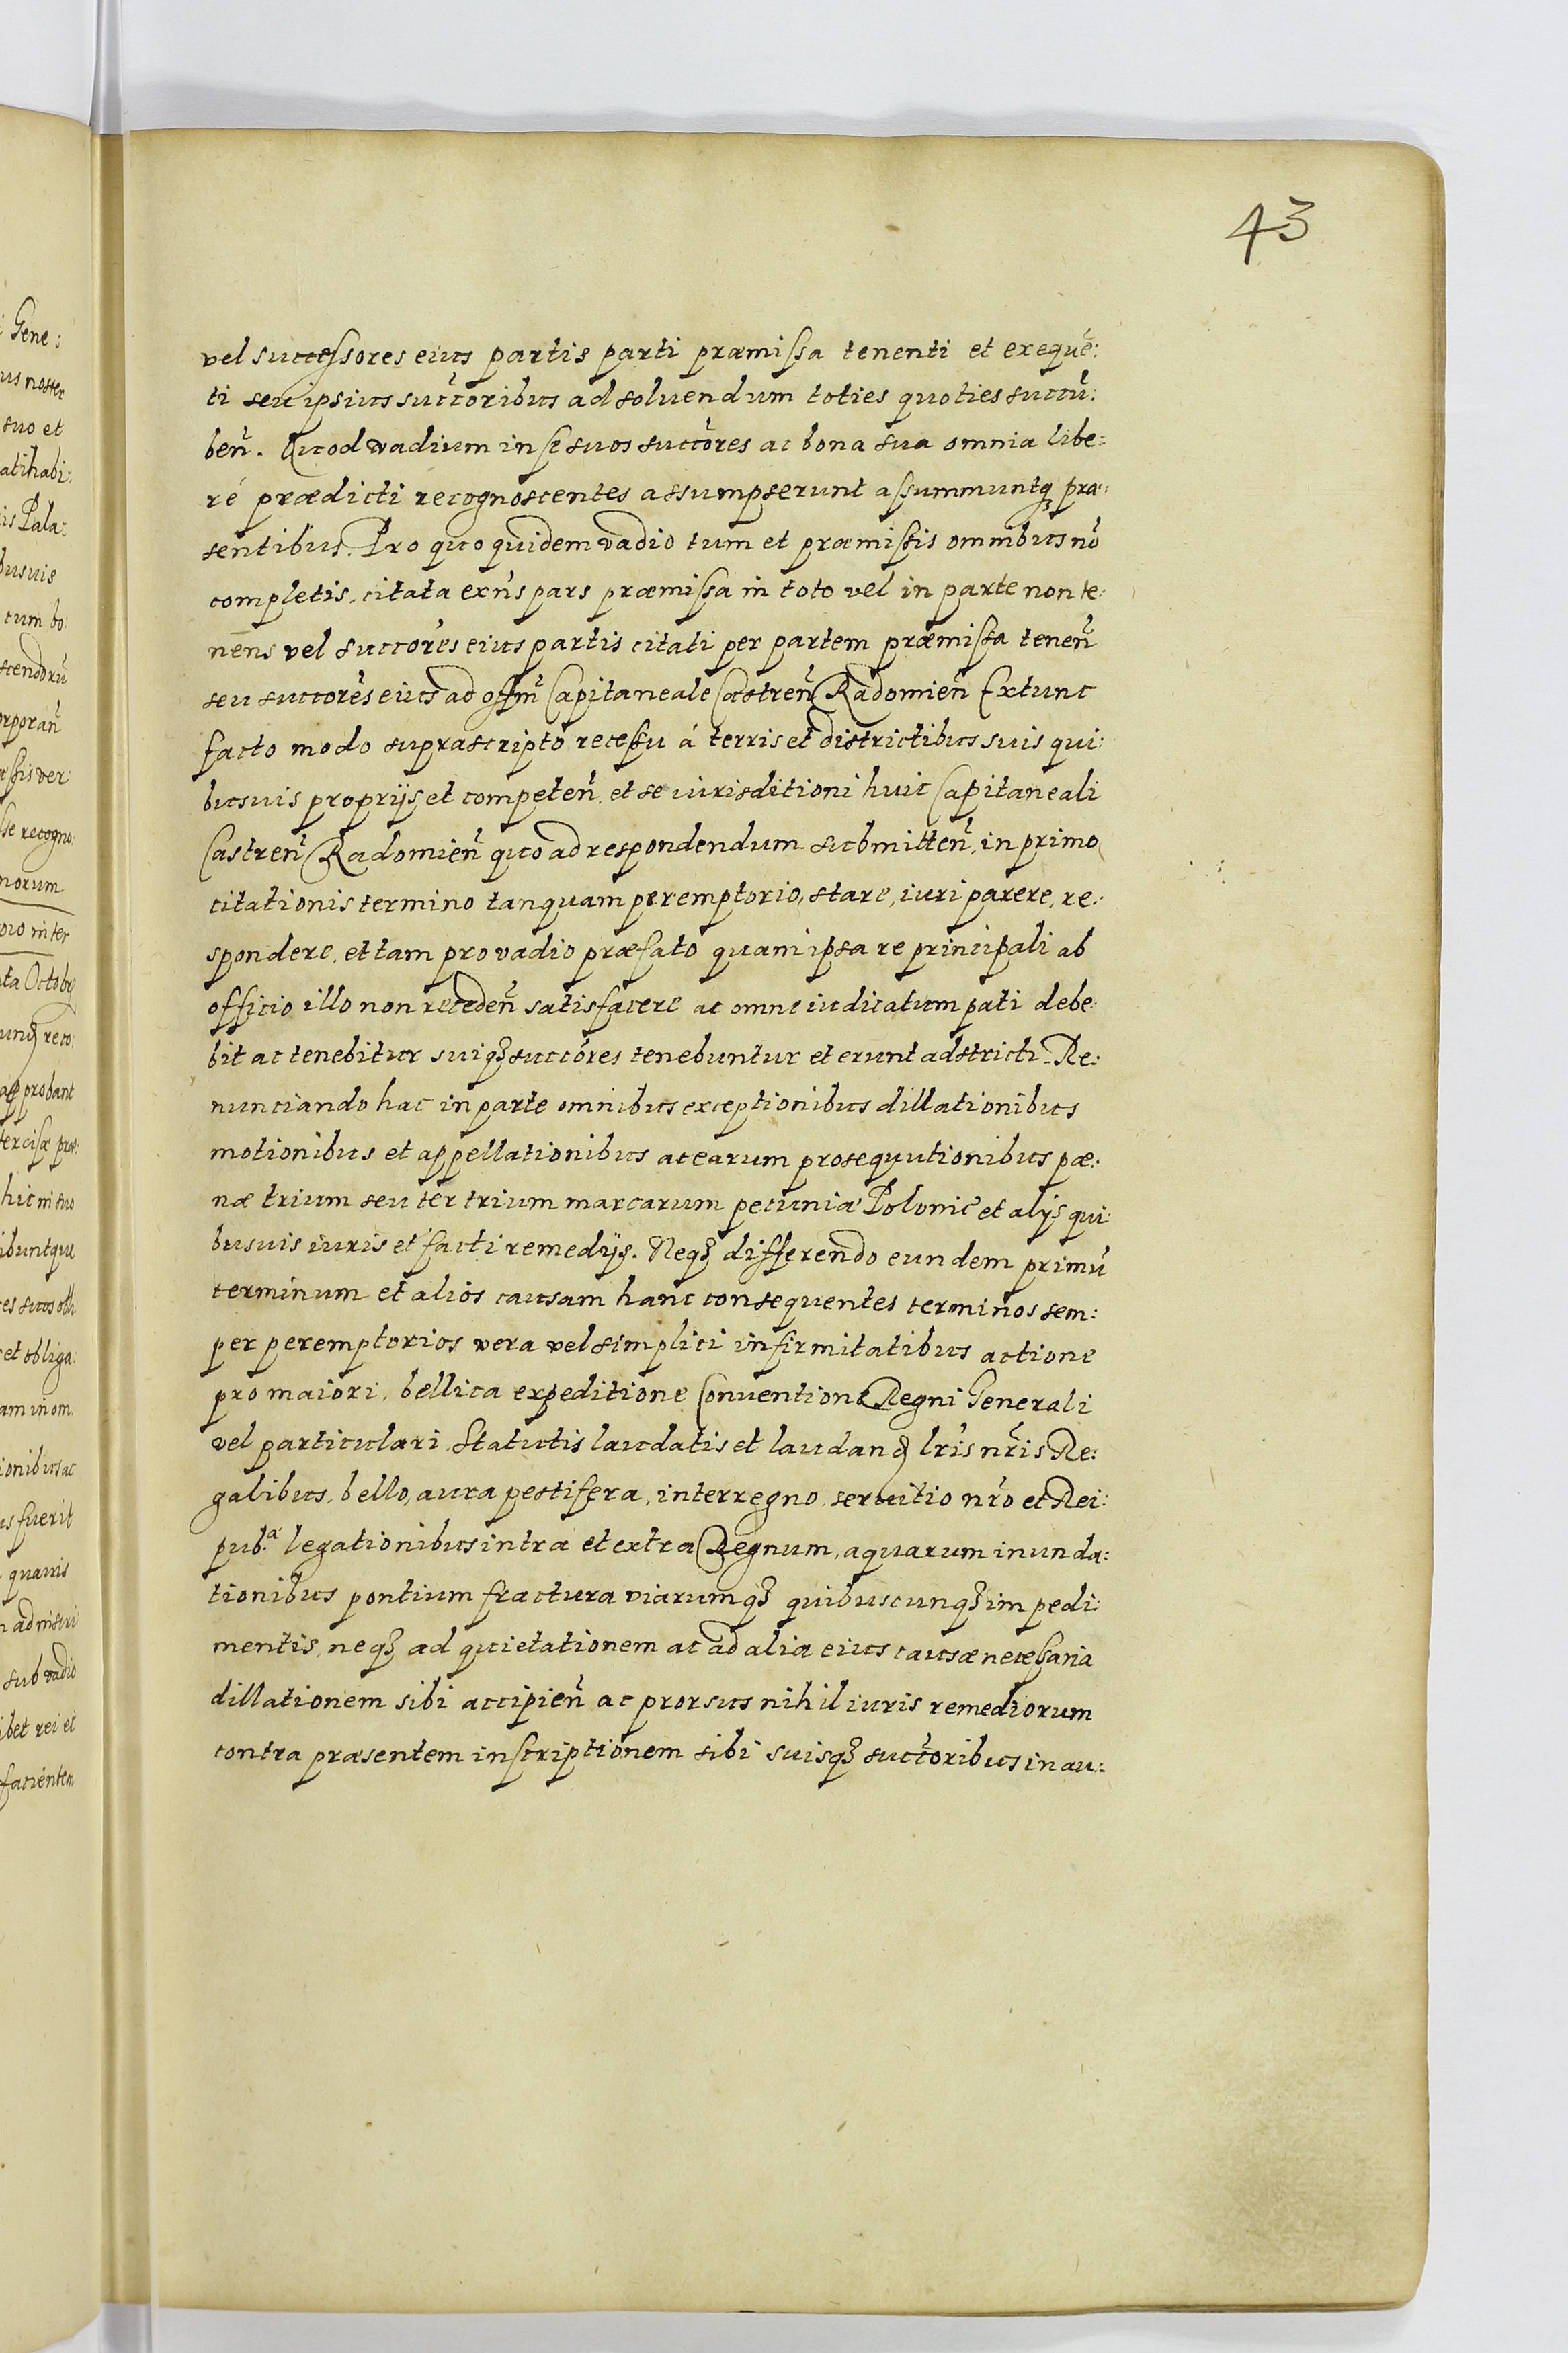 43
vel successores eius partis parti præmissa tenenti et exequē:
ti seu ipsius succōribus ad soluendum toties quoties succū:
beñ. Quod vadium in se suos succōres ac bona sua omnia libe:
ré prædicti recognoscentes assumpserunt assummuntq3 præ:
sentibus. Pro quo quidem vadio tum et præmissis omnibus nō
completis, citata exñs pars præmissa in toto vel in parte non te:
nens vel succōres eius partis citati per partem præmissa teneñ
seu succōres eius ad offm̃ Capitaneale Castreñ Radomień Extunc
facto modo suprascripto recessu á terris et districtibus suis qui:
busuis proprijs et competeñ. et se iurisditioni huic Capitaneali
Castreñ Radomień quo ad respondendum submitteñ, in primo
citationis termino tanquam peremptorio, stare, iuri parere, re:
spondere, et tam pro vadio præfato quam ipsa re principali ab
officio illo non recedeñ satisfacere ac omne iudicatum pati debe:
bit ac tenebitur suiq3 succōres tenebuntur et erunt adstricti. Re:
nunciando hac in parte omnibus exceptionibus dillationibus
motionibus et appellationibus ac earum prosequutionibus pæ:
næ trium seu ter trium marcarum pecuniæ Polonic̄ et alijs qui:
busuis iuris et facti remedijs. Neq3 differendo eundem primū
terminum et alios causam hanc consequentes terminos sem:
per peremptorios vera vel simplici infirmitatibus actione
pro maiori, bellica expeditione Conventione Regni Generali
vel particulari, Statutis laudatis et laudanꝺ lr̃is nr̃is Re:
galibus, bello, aura pestifera, interregno, seruitio nr̃o et Rei:
pub.ᵃ legationibus intra et extra Regnum, aquarum inunda:
tionibus pontium fractura viarumq3 quibuscunq3 impedi:
mentis, neq3 ad quietationem ac ad alia eius causæ necessaria
dillationem sibi accipień ac prorsus nihil iuris remediorum
contra præsentem inscriptionem sibi suisq3 succōribus in au: